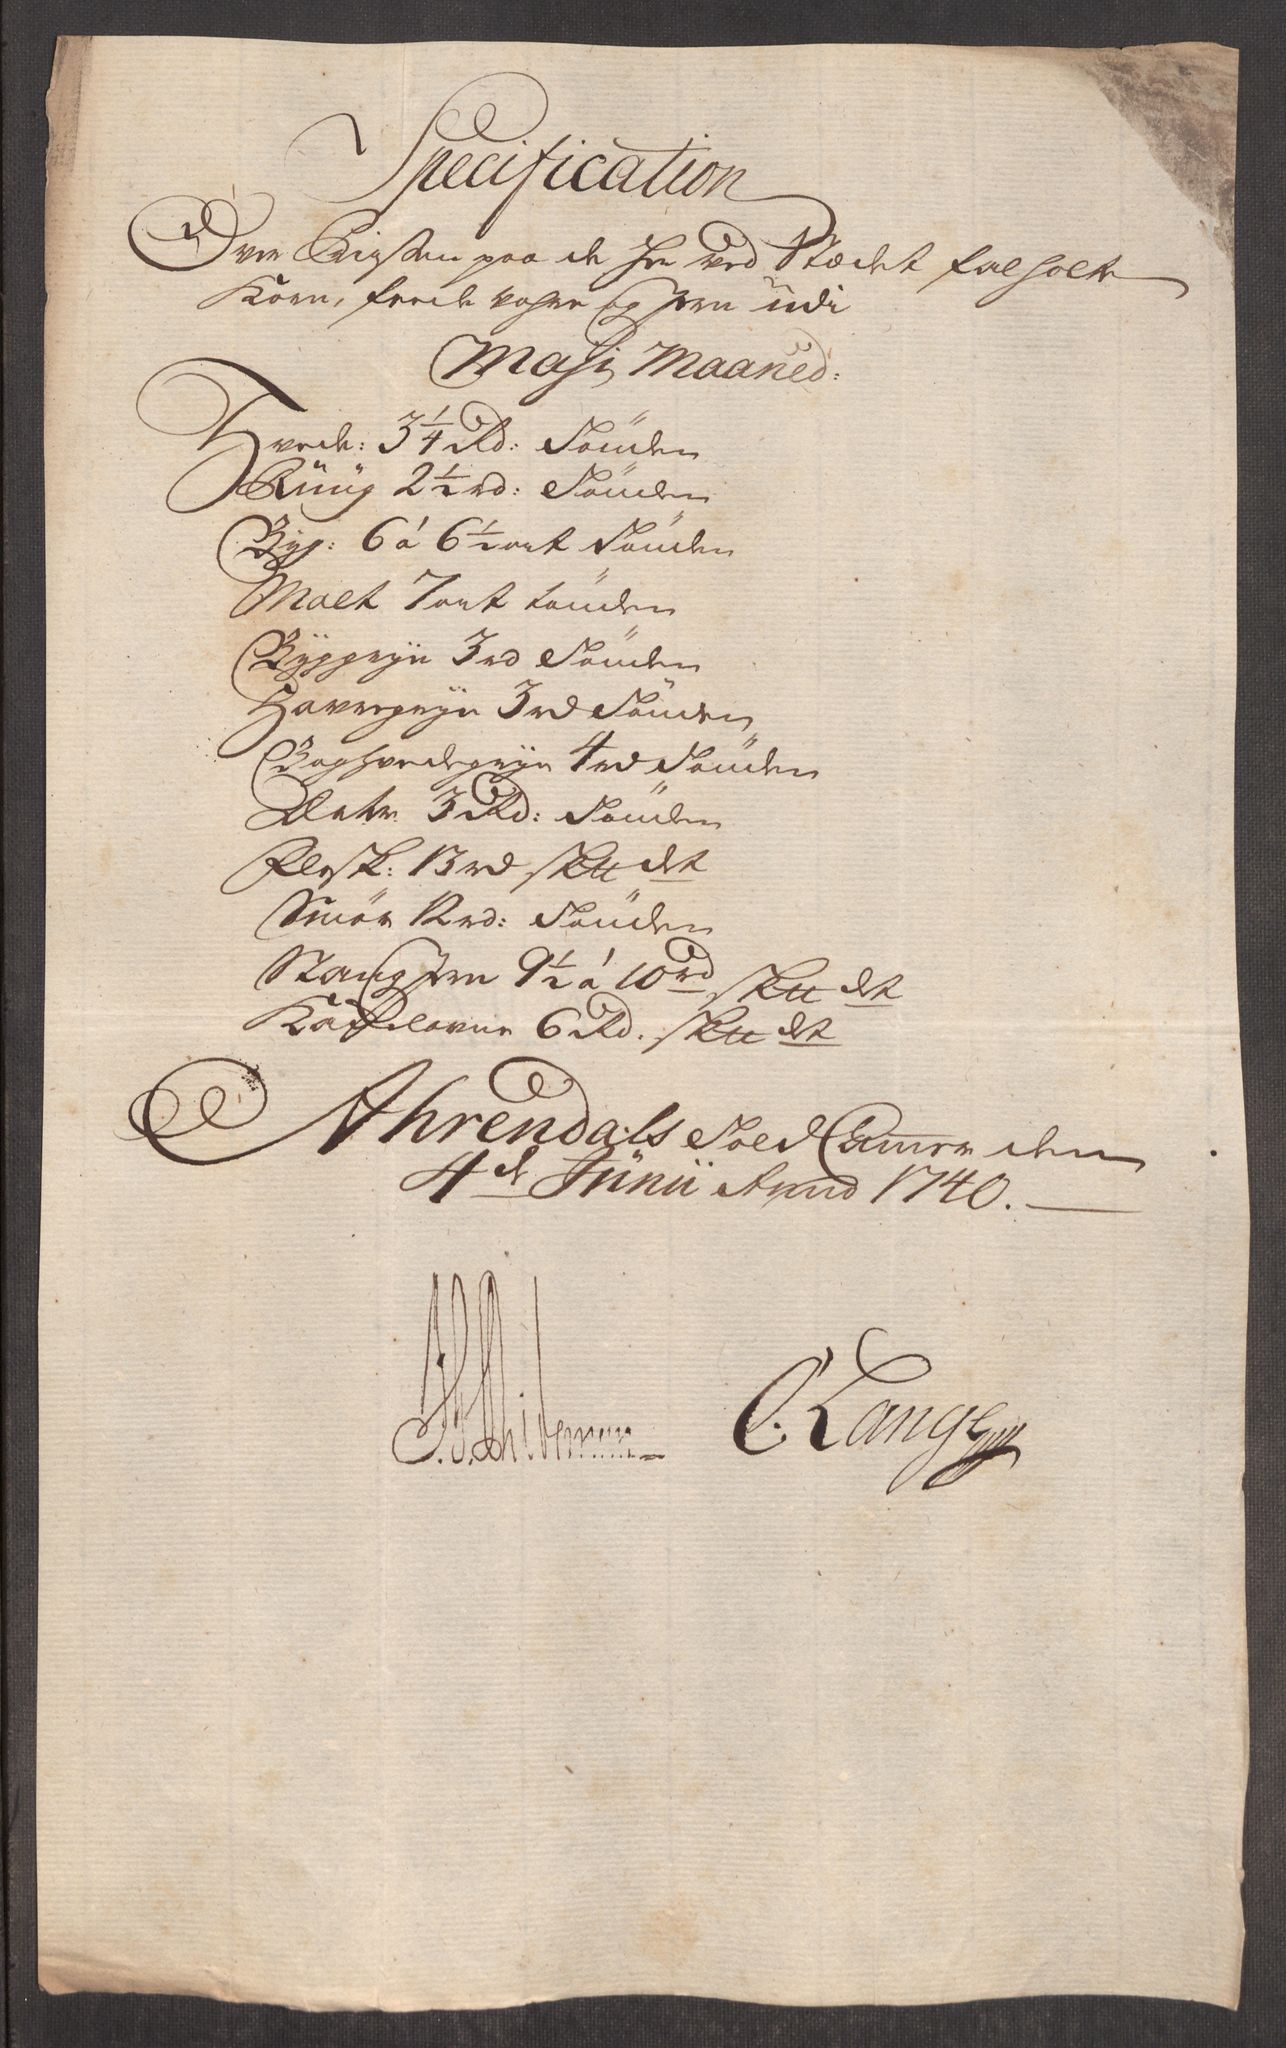 Specification
Over Prissen paa de her ved Stædet falholte
Korn, fede vahre og Jern udi
Maji Maaned:
Hvede: 3 1/4 Rd: Tønden
Rüüg 2 1/2 rd: Tønden
Byg: 6 á 6 1/2 ort Tønden
Malt 7 ort tønden
Byggryn 3 rd Tønden
Havregryn 3 rd Tønden
Boghvedegryn 4 rd Tønden
Erter 3 Rd: Tønden
Flesk: 13 rd skll det
Smør 12 rd: Tønden
Stang Jern 9 1/2 á 10 rd skll det
Kackelovne 6 Rd. skll det
Ahrendals Told Cammer den
4de Junii Anno 1740.
C. Lange